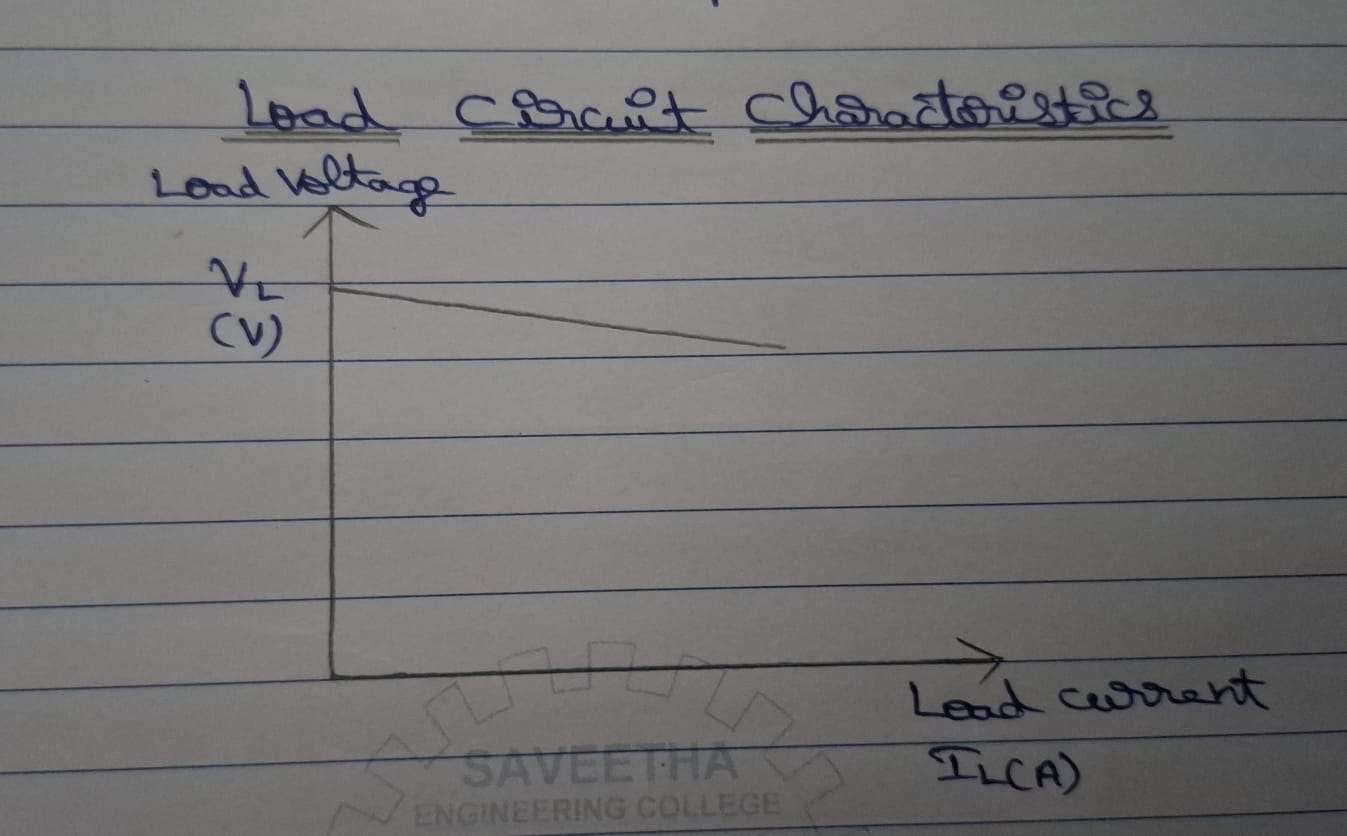 Load Circuit Characteristics
Load Voltage
VL
(V)
Load current
IL(A)
SAVEETHA
ENGINEERING COLLEGE